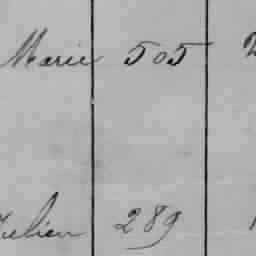 Marie 505 2
Julien 289